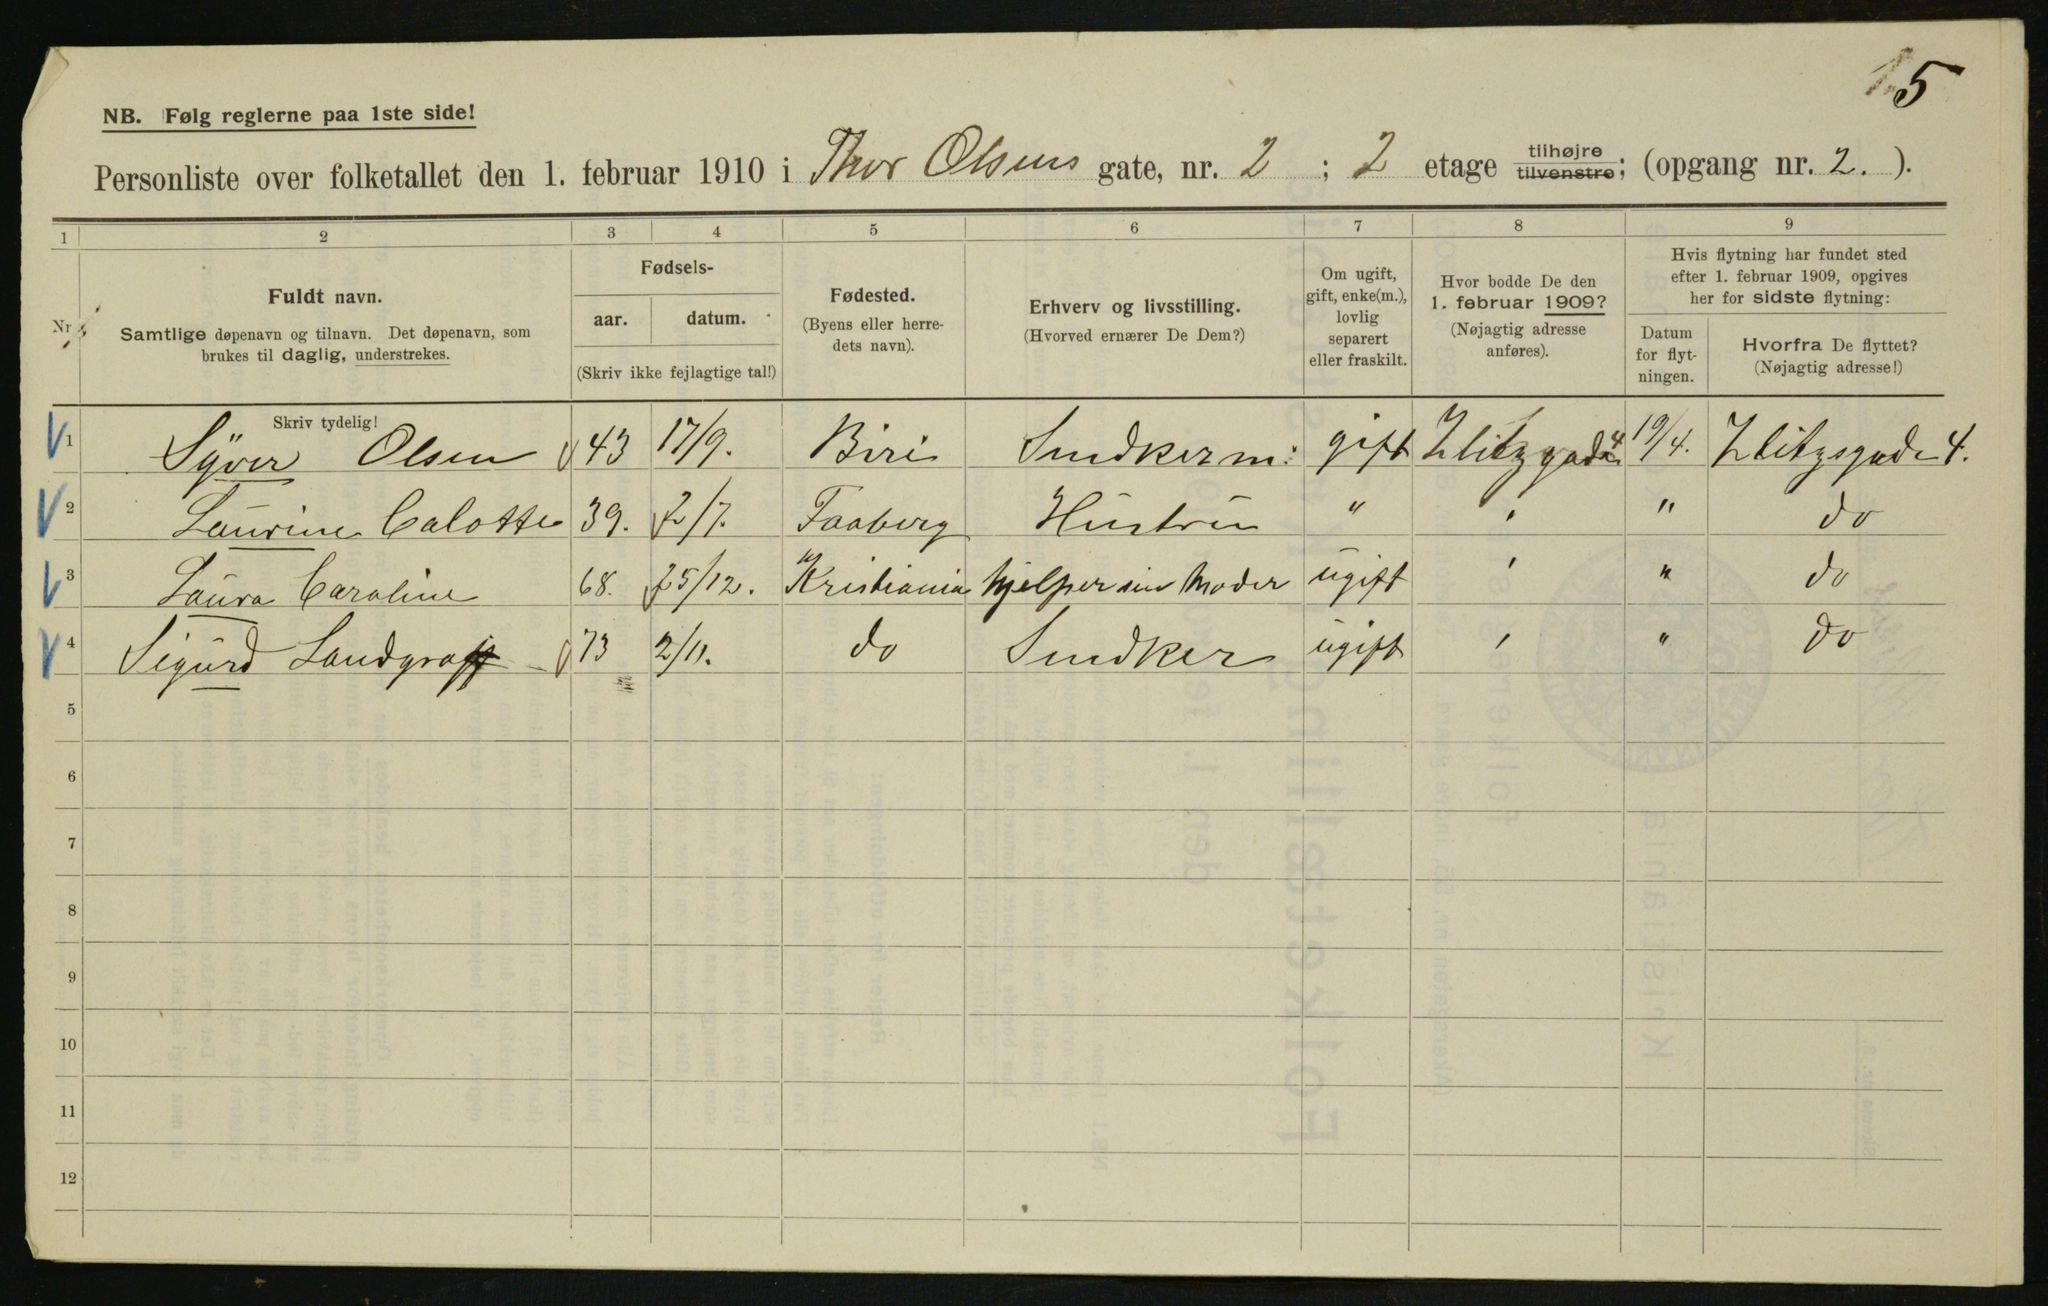 5
NB. Følg reglerne paa 1ste side!
Personliste over folketallet den 1. februar 1910 i Thor Olsens gate, nr. 2 ; 2 etage tilhøjre tilvenstre; (opgang nr. 2. ).
1 2 3 4 5 6 7 8 9
Nr.
Fuldt navn.
Samtlige døpenavn og tilnavn. Det døpenavn, som
brukes til daglig, understrekes.
Fødsels-
aar. datum.
(Skriv ikke fejlagtige tal!)
Fødested.
(Byens eller herre-
dets navn).
Erhverv og livsstilling.
(Hvorved ernærer De Dem?)
Om ugift,
gift, enke(m.),
lovlig
separert
eller fraskilt.
Hvor bodde De den
1. februar 1909?
(Nøjagtig adresse
anføres).
Hvis flytning har fundet sted
efter 1. februar 1909, opgives
her for sidste flytning:
Datum
for flyt-
ningen.
Hvorfra De flyttet?
(Nøjagtig adresse!)
Skriv tydelig!
1 Syver Olsen 43 17/9. Biri Snedkerm: gift 4 19/4. 4.
2 Laurine Calotte 39. 2/7. Faaberg Hustru " " " do
3 Laura Caroline 68. 25/12. Kristiania hjelper sin Moder ugift " " do
4 Sigurd Landgraff 73 2/11. do Snedker ugift " " do
5
6
7
8
9
10
11
12